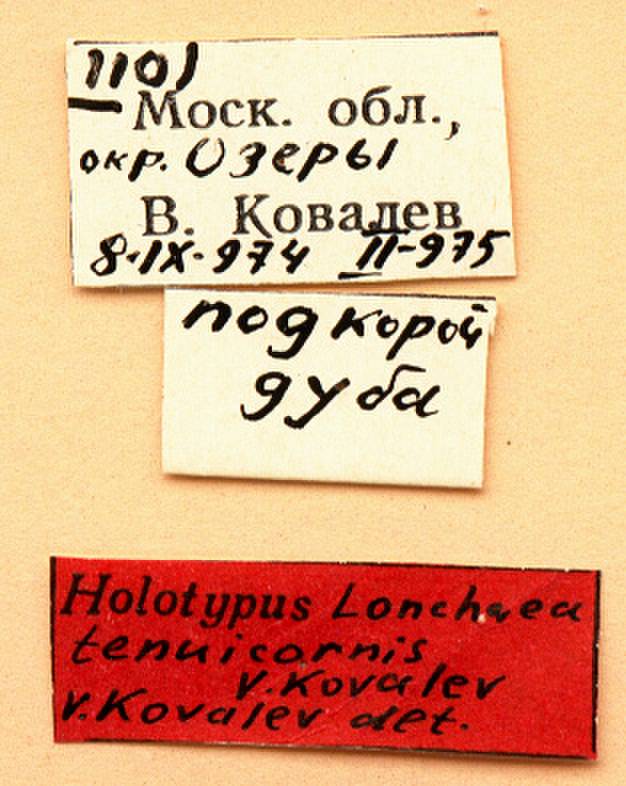 1101
Моск. обл.,
окр. Озеры
В. Ковалев
8·IX·974 II-975
под корой
дуба
Holotypus Lonchaea
tenuicornis
V. Kovalev
V. Kovalev det.